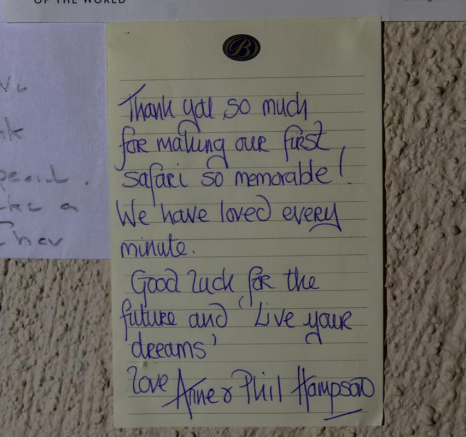 OF THE WORLD
B
Thank you so much
for making our first
safari so memorable!
We have loved every
minute.
Good luck for the
future and 'Live your
dreams'
love Anne & Phil Hampson